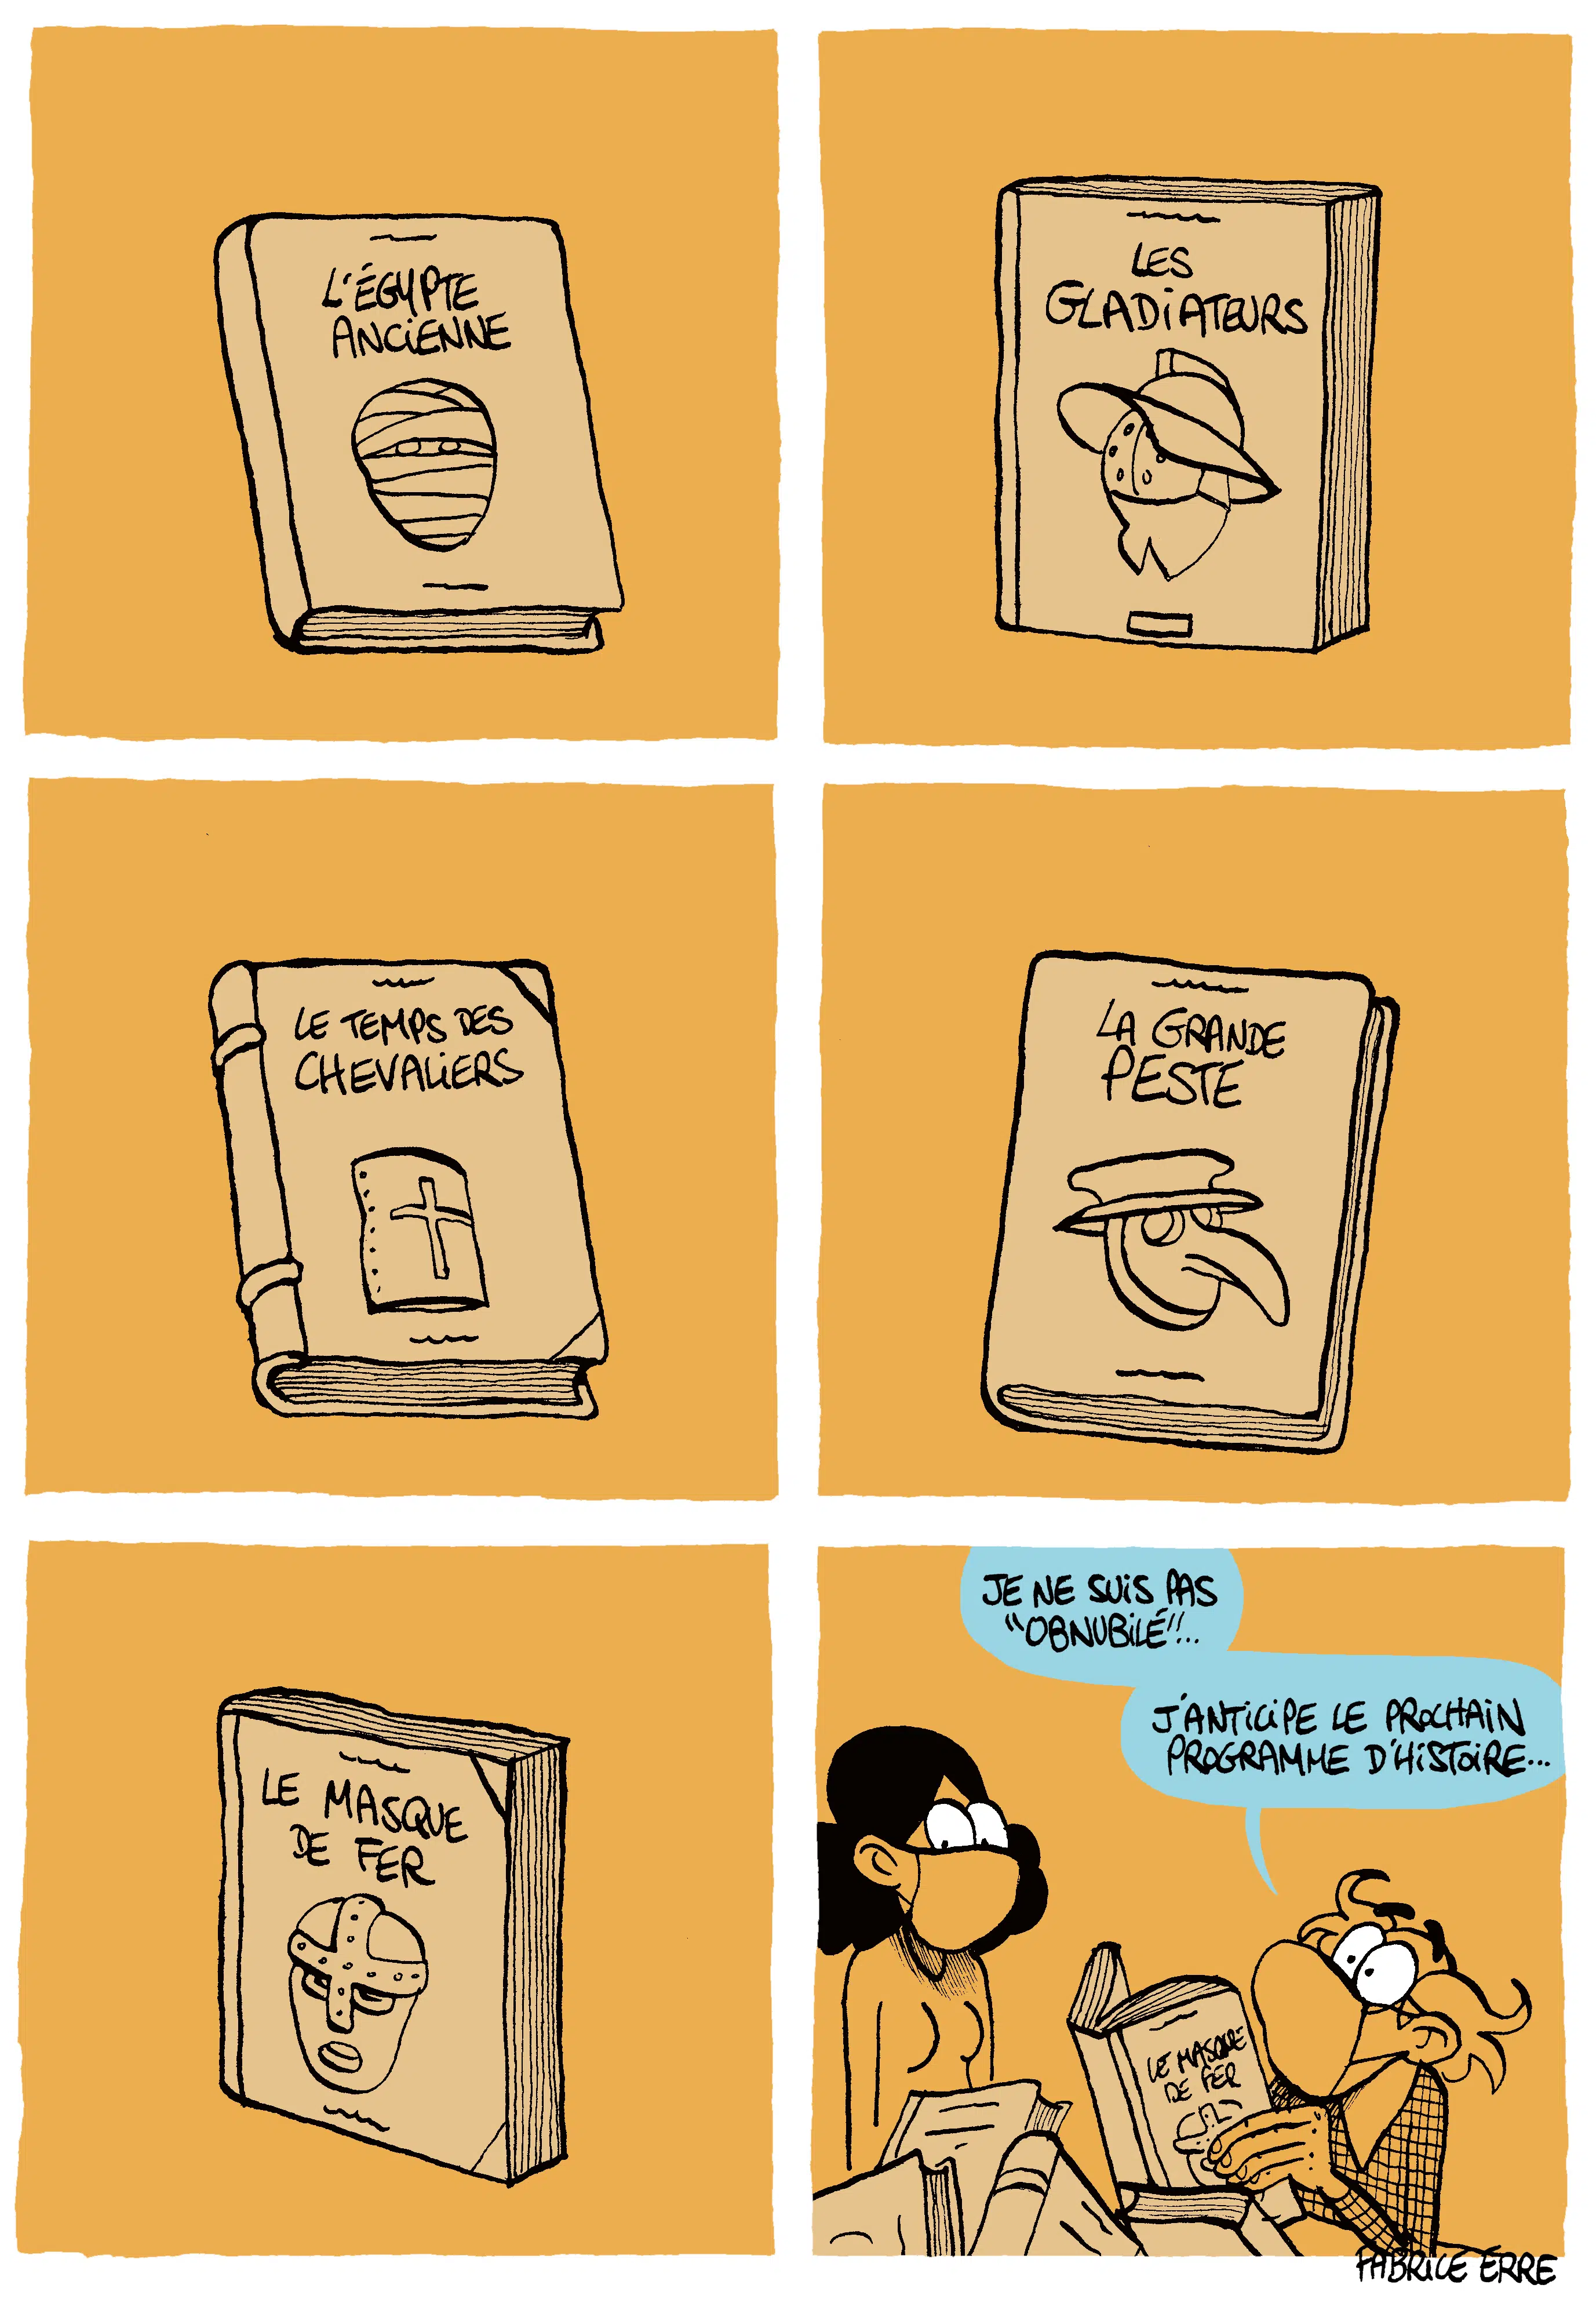 L'ÉGYPTE
ANCIENNE
LES
GLADIATEURS
LE TEMPS DES
CHEVALIERS
LA GRANDE
PESTE
LE MASQUE
DE FER
JE NE SUIS PAS
"OBNUBILÉ"...
J'ANTICIPE LE PROCHAIN
PROGRAMME D'HISTOIRE...
LE MASQUE
DE FER
FABRICE ERRE